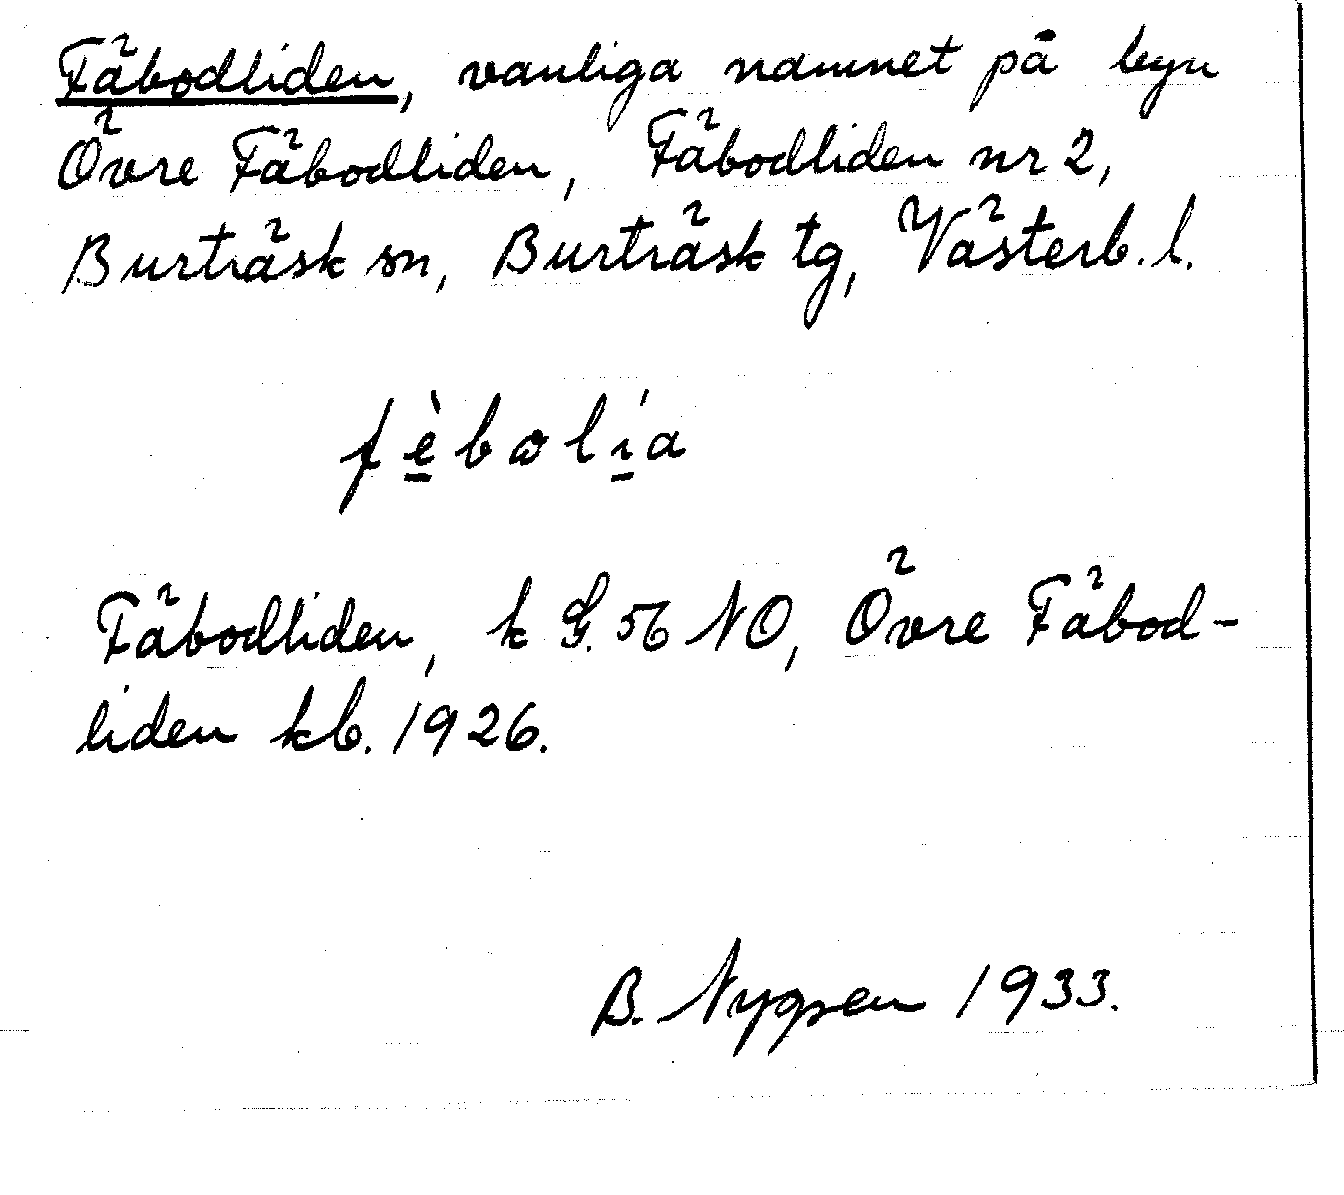 Fäbodliden, vanliga namnet på byn
Övre Fäbodliden, Fäbodliden nr 2,
Burträsk sn, Burträsk tg, Västerb. l.
fè̱bɷlí̱a
Fäbodliden, k G. 56 NO, Övre Fäbod-
liden kb. 1926.
B. Nygren 1933.